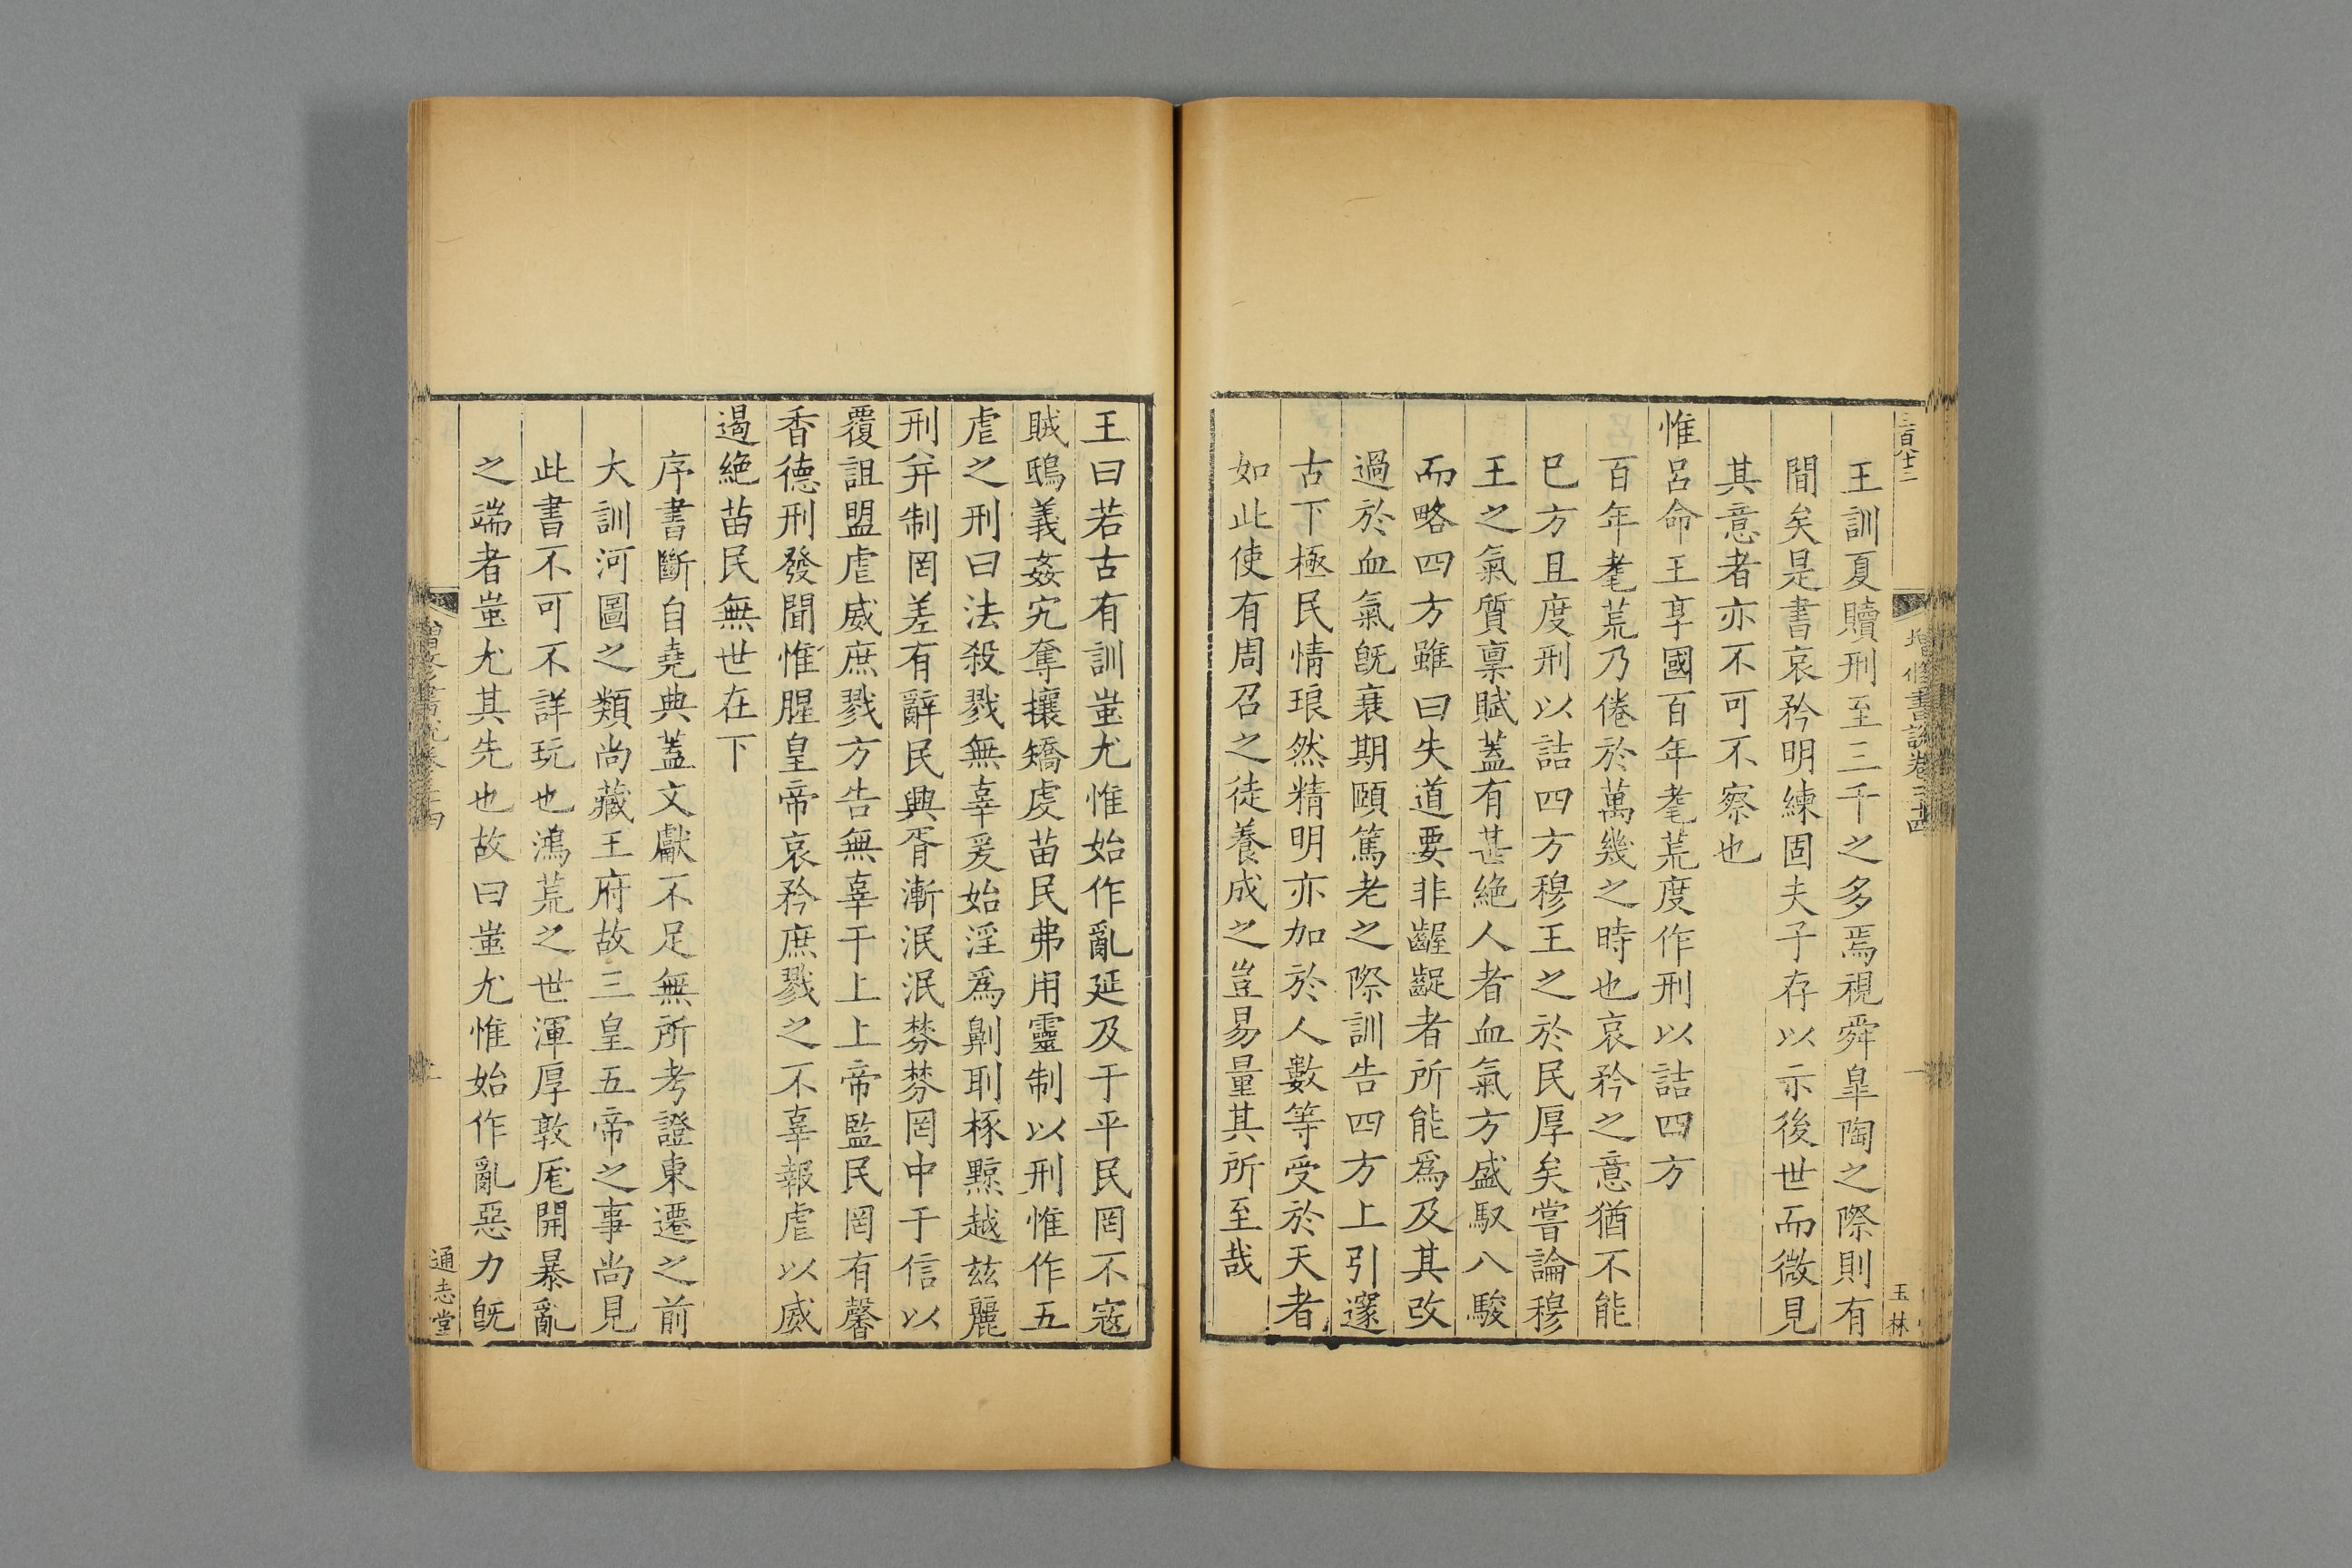 三百八十二
增修書說卷三十四
一
玉林
王訓夏贖刑至三千之多焉視舜皐陶之際則有
間矣是書哀矜明練固夫子存以示後世而微見
其意者亦不可不察也
惟呂命王享國百年耄荒度作刑以詰四方
百年耄荒乃倦於萬幾之時也哀矜之意猶不能
巳方且度刑以詰四方穆王之於民厚矣嘗論穆
王之氣質稟賦蓋有甚絶人者血氣方盛馭八駿
而略四方雖曰失道要非齷齪者所能爲及其改
過於血氣旣衰期頤篤老之際訓告四方上引邃
古下極民情琅然精明亦加於人數等受於天者
如此使有周召之徒養成之豈易量其所至哉
王曰若古有訓蚩尤惟始作亂延及于平民罔不寇
賊鴟義姦宄奪攘矯虔苗民弗用靈制以刑惟作五
虐之刑曰法殺戮無辜爰始淫爲劓刵椓黥越兹麗
刑并制罔差有辭民興胥漸泯泯棼棼罔中于信以
覆詛盟虐威庶戮方告無辜于上上帝監民罔有馨
香德刑發聞惟腥皇帝哀矜庶戮之不辜報虐以威
遏絶苗民無世在下
序書斷自堯典蓋文獻不足無所考證東遷之前
大訓河圖之類尚藏王府故三皇五帝之事尚見
此書不可不詳玩也鴻荒之世渾厚敦厖開暴亂
之端者蚩尤其先也故曰蚩尤惟始作亂惡力旣
增修書說卷三十四
通志堂